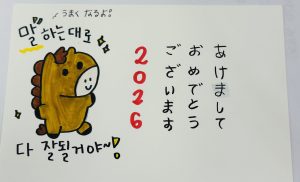 うまくなるよ!
말하는대로
다 잘될거야~!
2026
あけまして
おめでとう
ございます